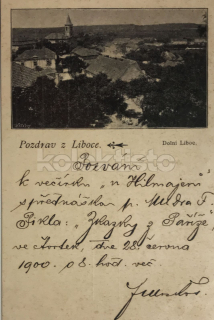 Pozdrav z Liboce.
Dolní Liboc.
Pozvání
k večírku „u Hilmajerů“
s přednáška p. Mudra T.
Pikla: „Zkazky z Paříže“
ve čtvrtek, dne 28. června
1900. o 8. hod. več.